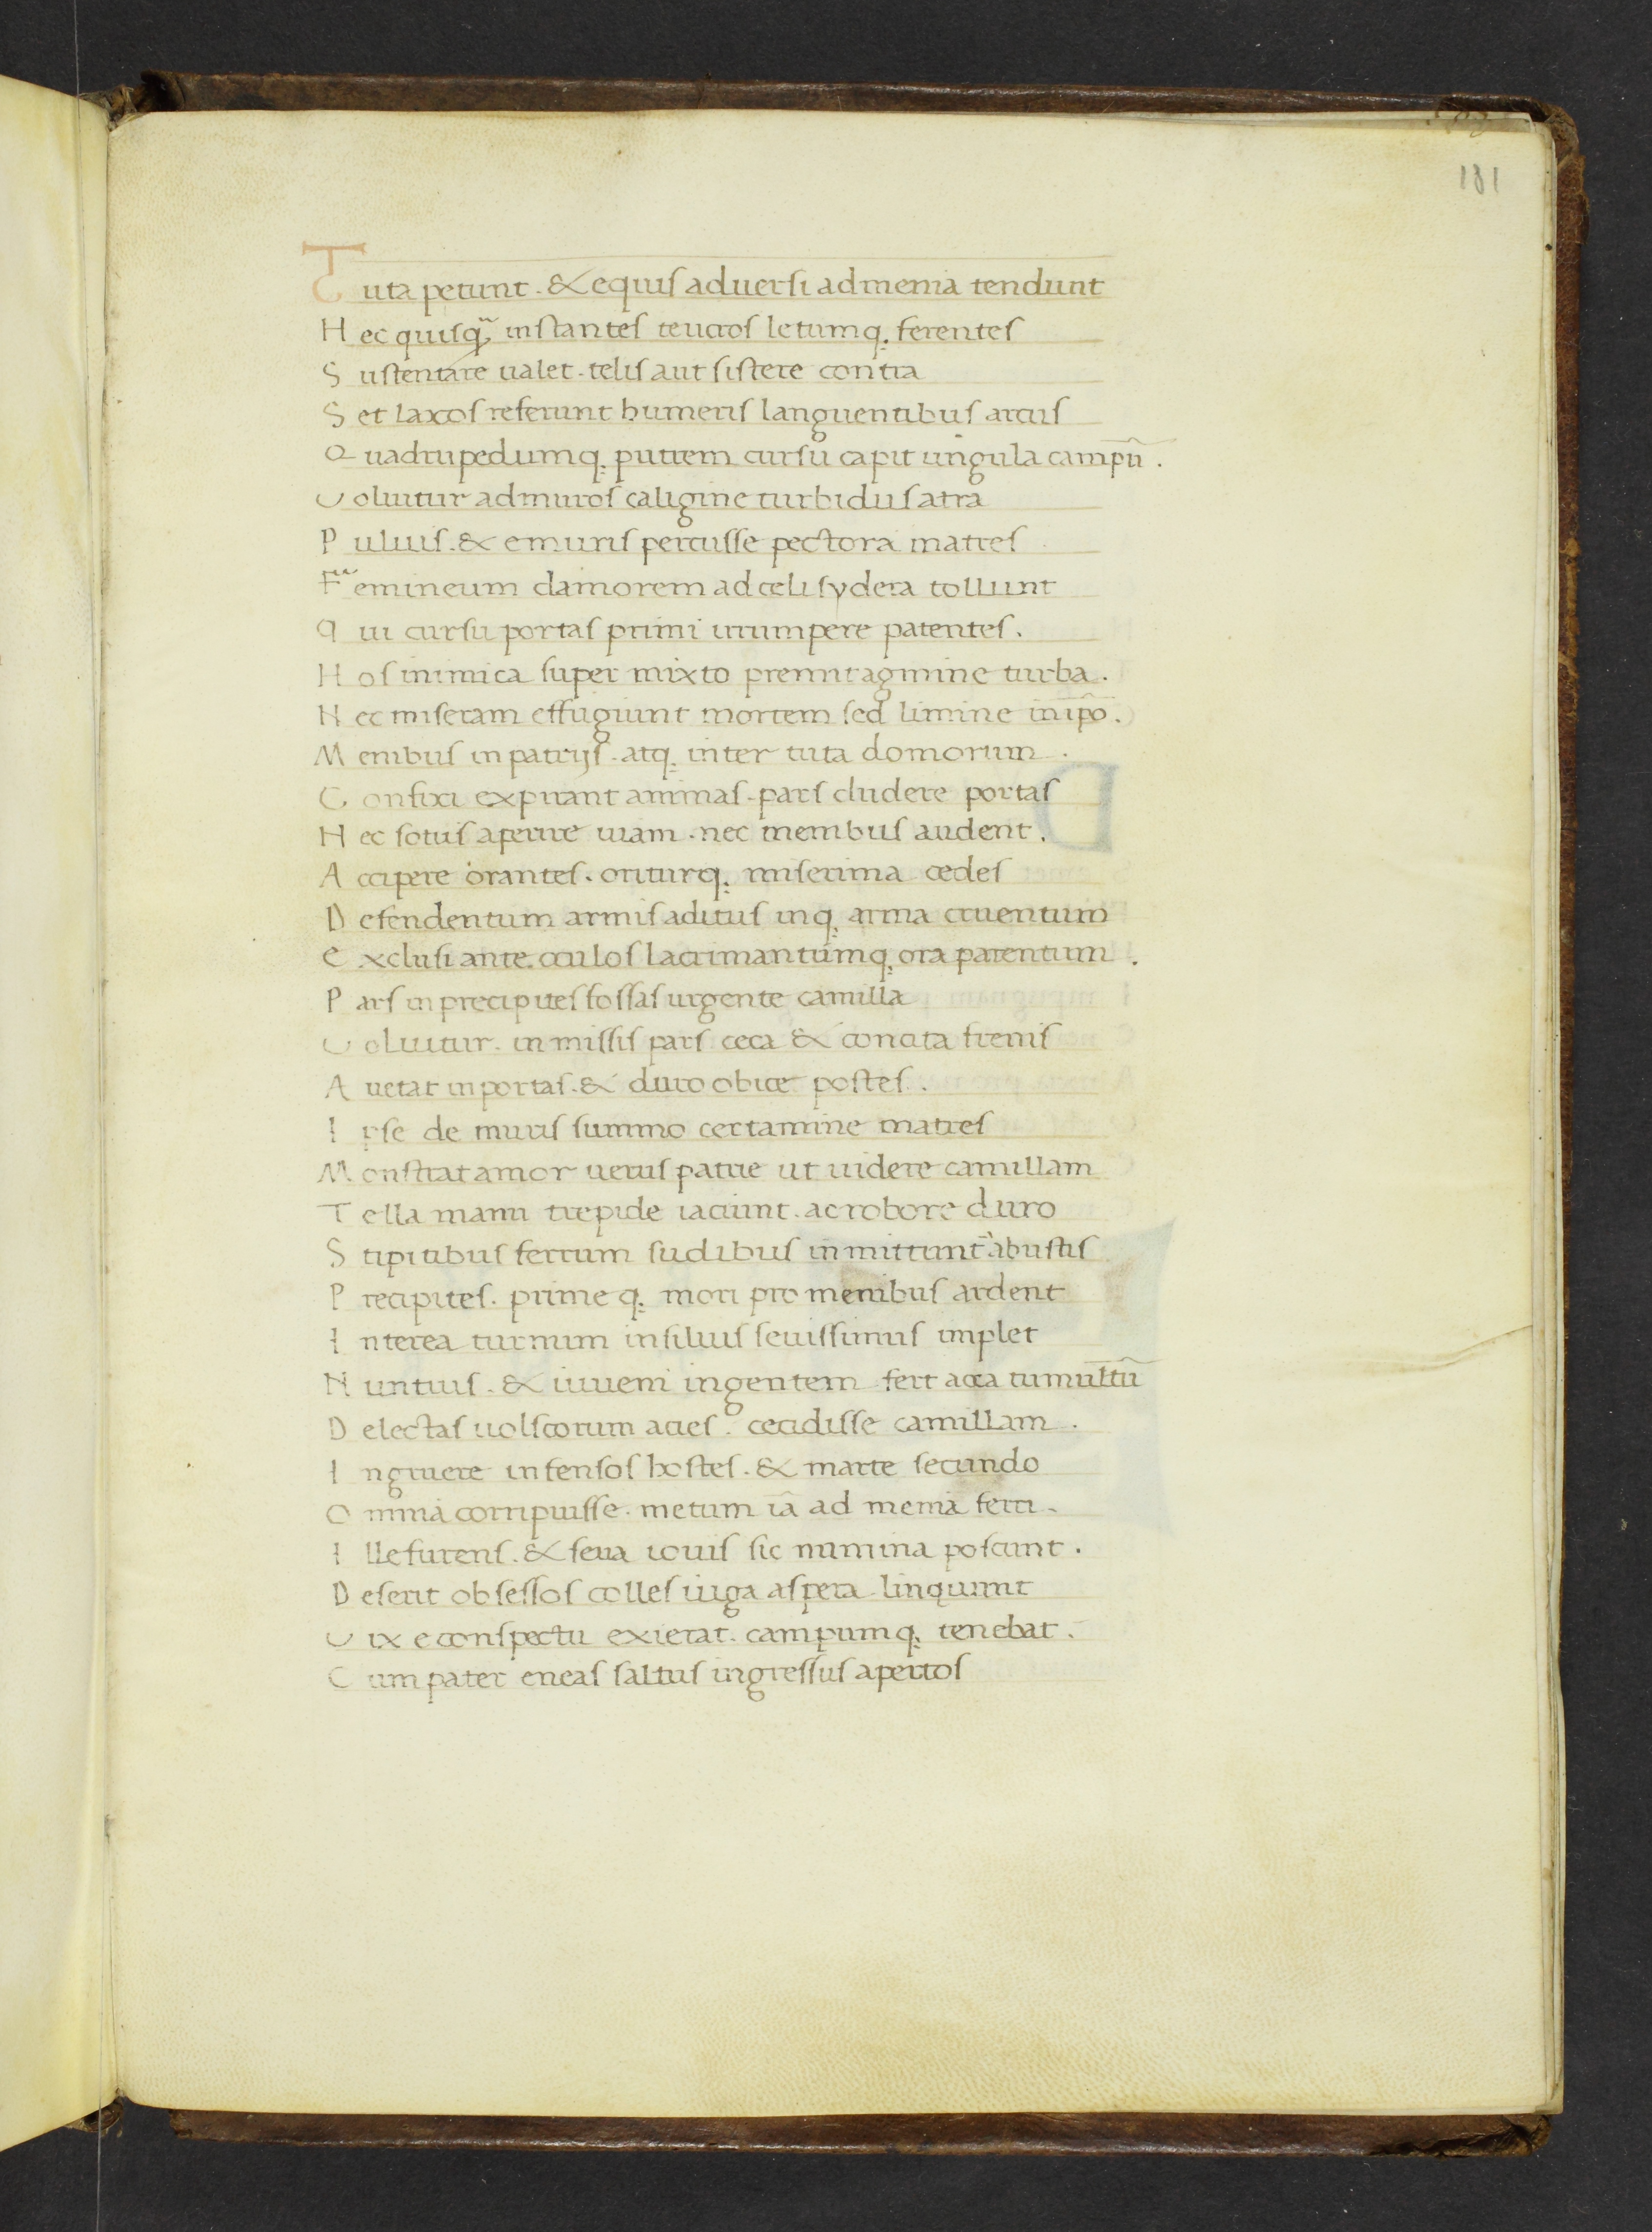 181
Tuta petunt. & equis aduersi ad menia tendunt
Hec quisq̃ instantes teucros letumq. ferentes
Sustentare ualet. telis aut sistere contra
Set laxos referunt humeris languentibus arcus
Quadrupedumq. putrem cursu capit ungula campũ.
Voluitur ad muros caligine turbidus atra
Puluis. & e muris percusse pectora matres
Femineum clamorem ad celi sydera tollunt
Qui cursu portas primi irrumpere patentes.
Hos inimica super mixto premit agmine turba.
Nec miseram effugiunt mortem sed limine in ip̃o.
Menibus in patrijs. atq. inter tuta domorum.
Confixi expirant animas. pars cludere portas
Nec sotiis aperire uiam. nec menibus audent.
Accipere orantes. oriturq. miserima cedes
Defendentum armis aditus inq. arma cruentum
Exclusi ante oculos lacrimantumq. ora parentum.
Pars in precipites fossas urgente camilla
Voluitur. inmissis pars ceca & concita frenis
Auetat in portas. & duro obice postes.
Ipse de muris summo certamine matres
Monstrat amor uerus patrie ut uidere camillam
Tella manu trepide iaciunt. ac robore duro
Stipitibus ferrum sudibus inmittunt abustis
Precipites. prime q. mori pro menibus ardent
Interea turnum in siluis seuissimus implet
Nuntius. & iuueni ingentem fert acca tumultũ
Delectas uolscorum acies. cecidisse camillam.
Ingruere infensos hostes. & marte secundo
Omnia corripuisse. metum iã ad menia ferri.
Ille furens. & seua iouis sic numina poscunt.
Deserit obsessos colles iuga aspera linquunt
Vix e conspectu exierat. campumq. tenebat.
Cum pater eneas saltus ingressus apertos